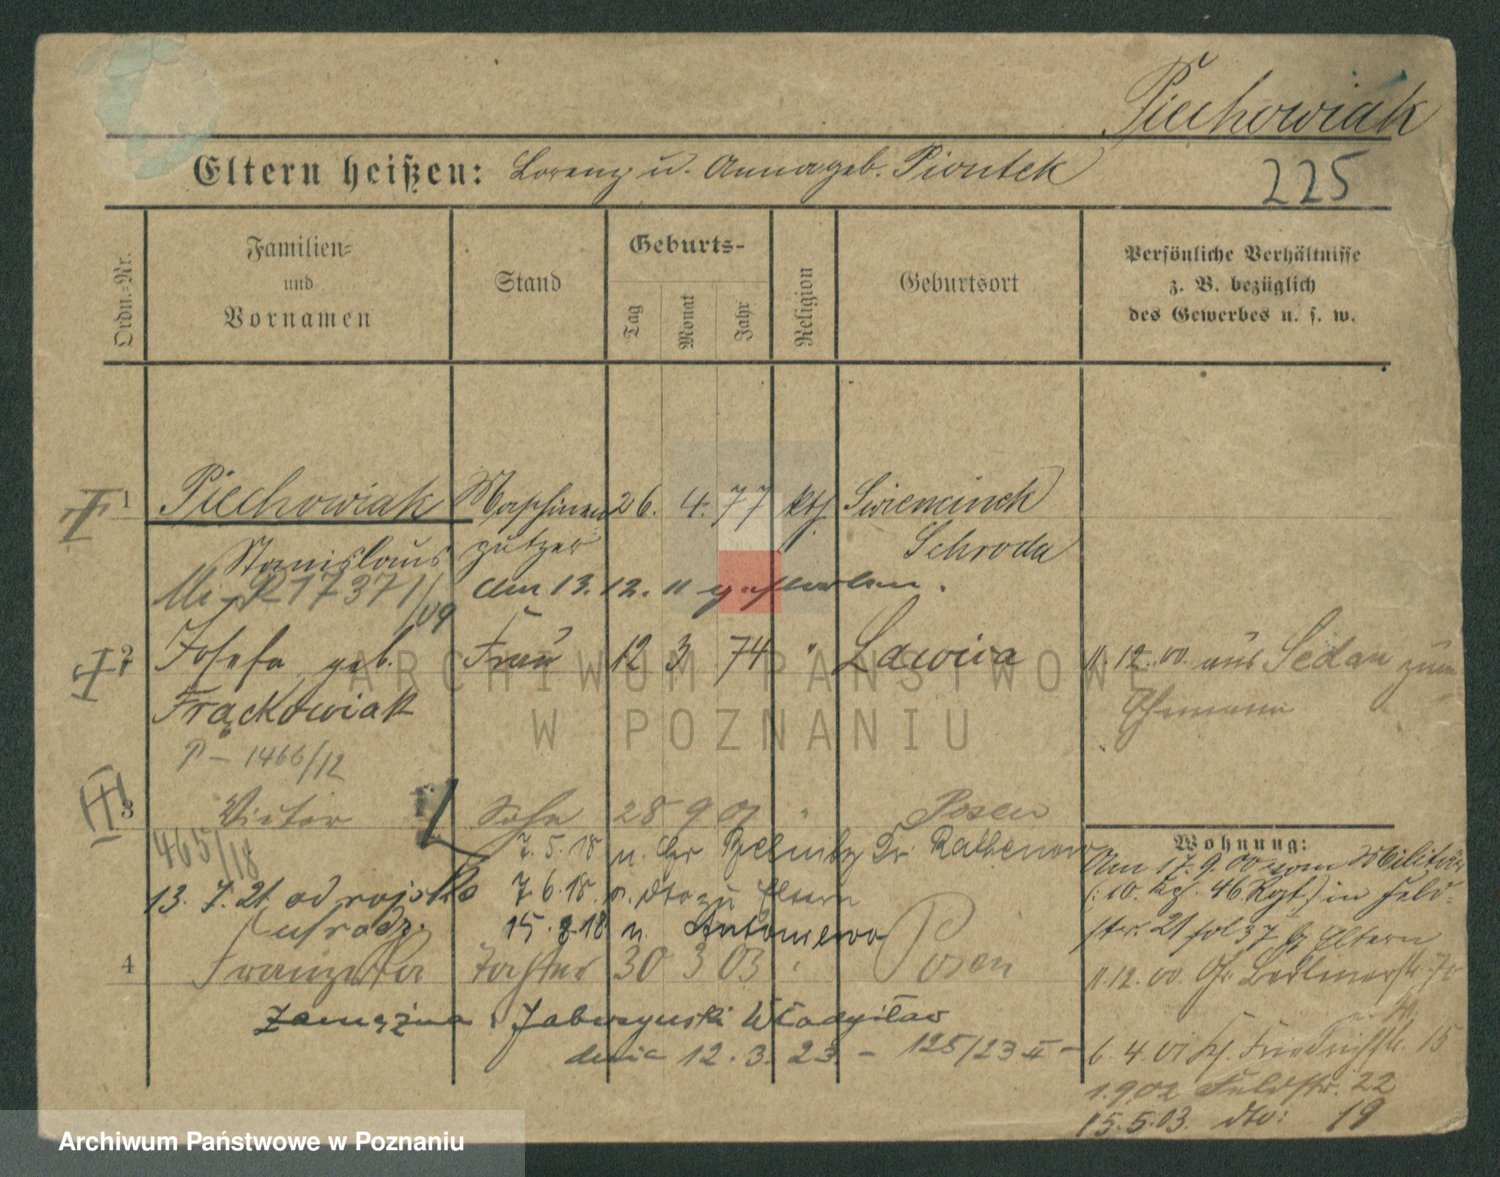 Piechowiak
Eltern heißen: Lorenz u. Anna geb. Piontek
225
Ordn.-Nr.
Familien- und Vornamen
Stand
Geburts-
Tag
Monat
Jahr
Religion
Geburtsort
Persönliche Verhältnisse z. B. bezüglich des Gewerbes u. s. w.
1 Piechowiak Maschinen 26. 4. 77 kth Swiencinek
Stanislaus putzer Schroda
R 1737/09 Am 13. 12. 11 gestorben.
2 Josefa, geb. Frau 12 3 74 " Lawica 11. 12. 00. aus Sedan zum
Frąckowiak Ehemann
P - 1466/12
3 Victor Sohn 28 9 01 " Posen
Wohnung:
465/18 7. 5. 18 n. Dr. Rathenow
Am 17. 9. 00 vom Militär
13. 7. 21 od 7. 6. 18 v. dto zu Eltern
(: 10. 46 Rgt) in Feld-
15. 8. 18 n. Antoniewo
str. 21 Eltern
4 Franziska Tochter 30 3 03 " Posen
11. 12. 00. Gr. Berlinerstr.
Zamężna: Jaborzynski Władysław
dnia 12. 3. 23 - 125/23 II -
6. 4. 01 Friedrichstr. 15
1. 9. 02 Feldstr. 22
15. 5. 03. dto: 19
ARCHIWUM PAŃSTWOWE
W POZNANIU
Archiwum Państwowe w Poznaniu